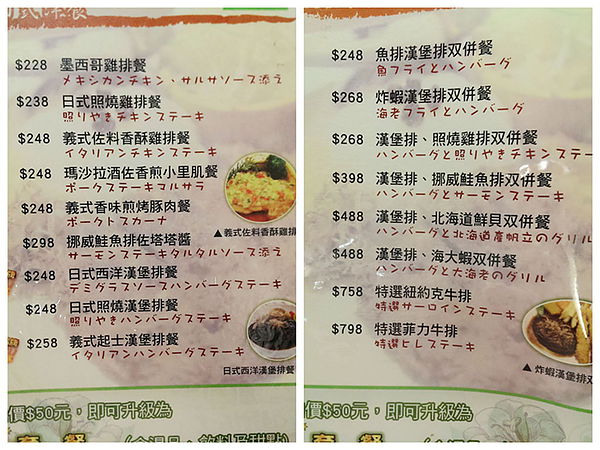 $228 墨西哥雞排餐
メキシカンチキン、サルサソース添え
$238 日式照燒雞排餐
照りやきチキンステーキ
$248 義式佐料香酥雞排餐
イタリアンチキンステーキ
$248 瑪沙拉酒佐香煎小里肌餐
ポークステーキマルサラ
$248 義式香味煎烤豚肉餐
ポークトスカーナ
▲義式佐料香酥雞排
$298 挪威鮭魚排佐塔塔醬
サーモンステーキタルタルソース添え
$248 日式西洋漢堡排餐
デミグラスソースハンバーグステーキ
$248 日式照燒漢堡排餐
照りやきハンバーグステーキ
$258 義式起士漢堡排餐
イタリアンハンバーグステーキ
日式西洋漢堡排餐
價$50元，即可升級為
套 餐 (含湯品、飲料及甜點)
$248 魚排漢堡排双併餐
魚フライとハンバーグ
$268 炸蝦漢堡排双併餐
海老フライとハンバーグ
$268 漢堡排、照燒雞排双併餐
ハンバーグと照りやきチキンステー
$398 漢堡排、挪威鮭魚排双併餐
ハンバーグとサーモンステーキ
$488 漢堡排、北海道鮮貝双併餐
ハンバーグと北海道産帆立のグリル
$488 漢堡排、海大蝦双併餐
ハンバーグと大海老のグリル
$758 特選紐約克牛排
特選サーロインステーキ
$798 特選菲力牛排
特選ヒレステーキ
▲炸蝦漢堡排双
價$50元，即可升級為
套 餐